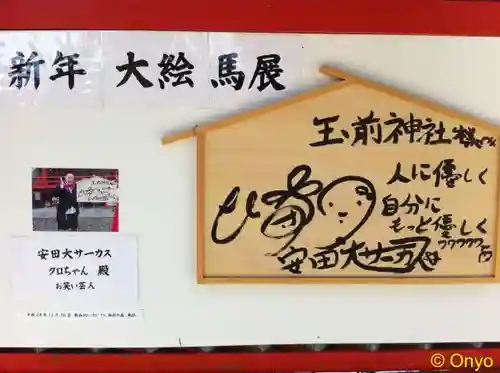 新年 大絵馬展
玉前神社様江
人に優しく
自分に
もっと優しく
ワワワワワ
安田大サーカス
安田大サーカス
クロちゃん 殿
お笑い芸人
© Onyo